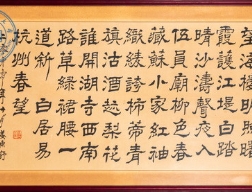 望海樓明照曙
霞護江堤白踏
晴沙濤聲夜入
伍員廟柳色春
藏蘇小家紅袖
織綾誇柿蒂青
旗沽酒趁梨花
誰開湖寺西南
路草綠裙腰一
道斜 白居易
杭州春望